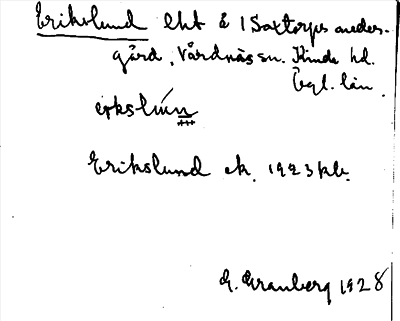 Erikslund lht å 1 Saxtorps anders-
gård, Vårdnäs sn. Kinda hd.
Ögl. län.
erkslún
Erikslund ek. 1923 kb.
G. Granberg 1928